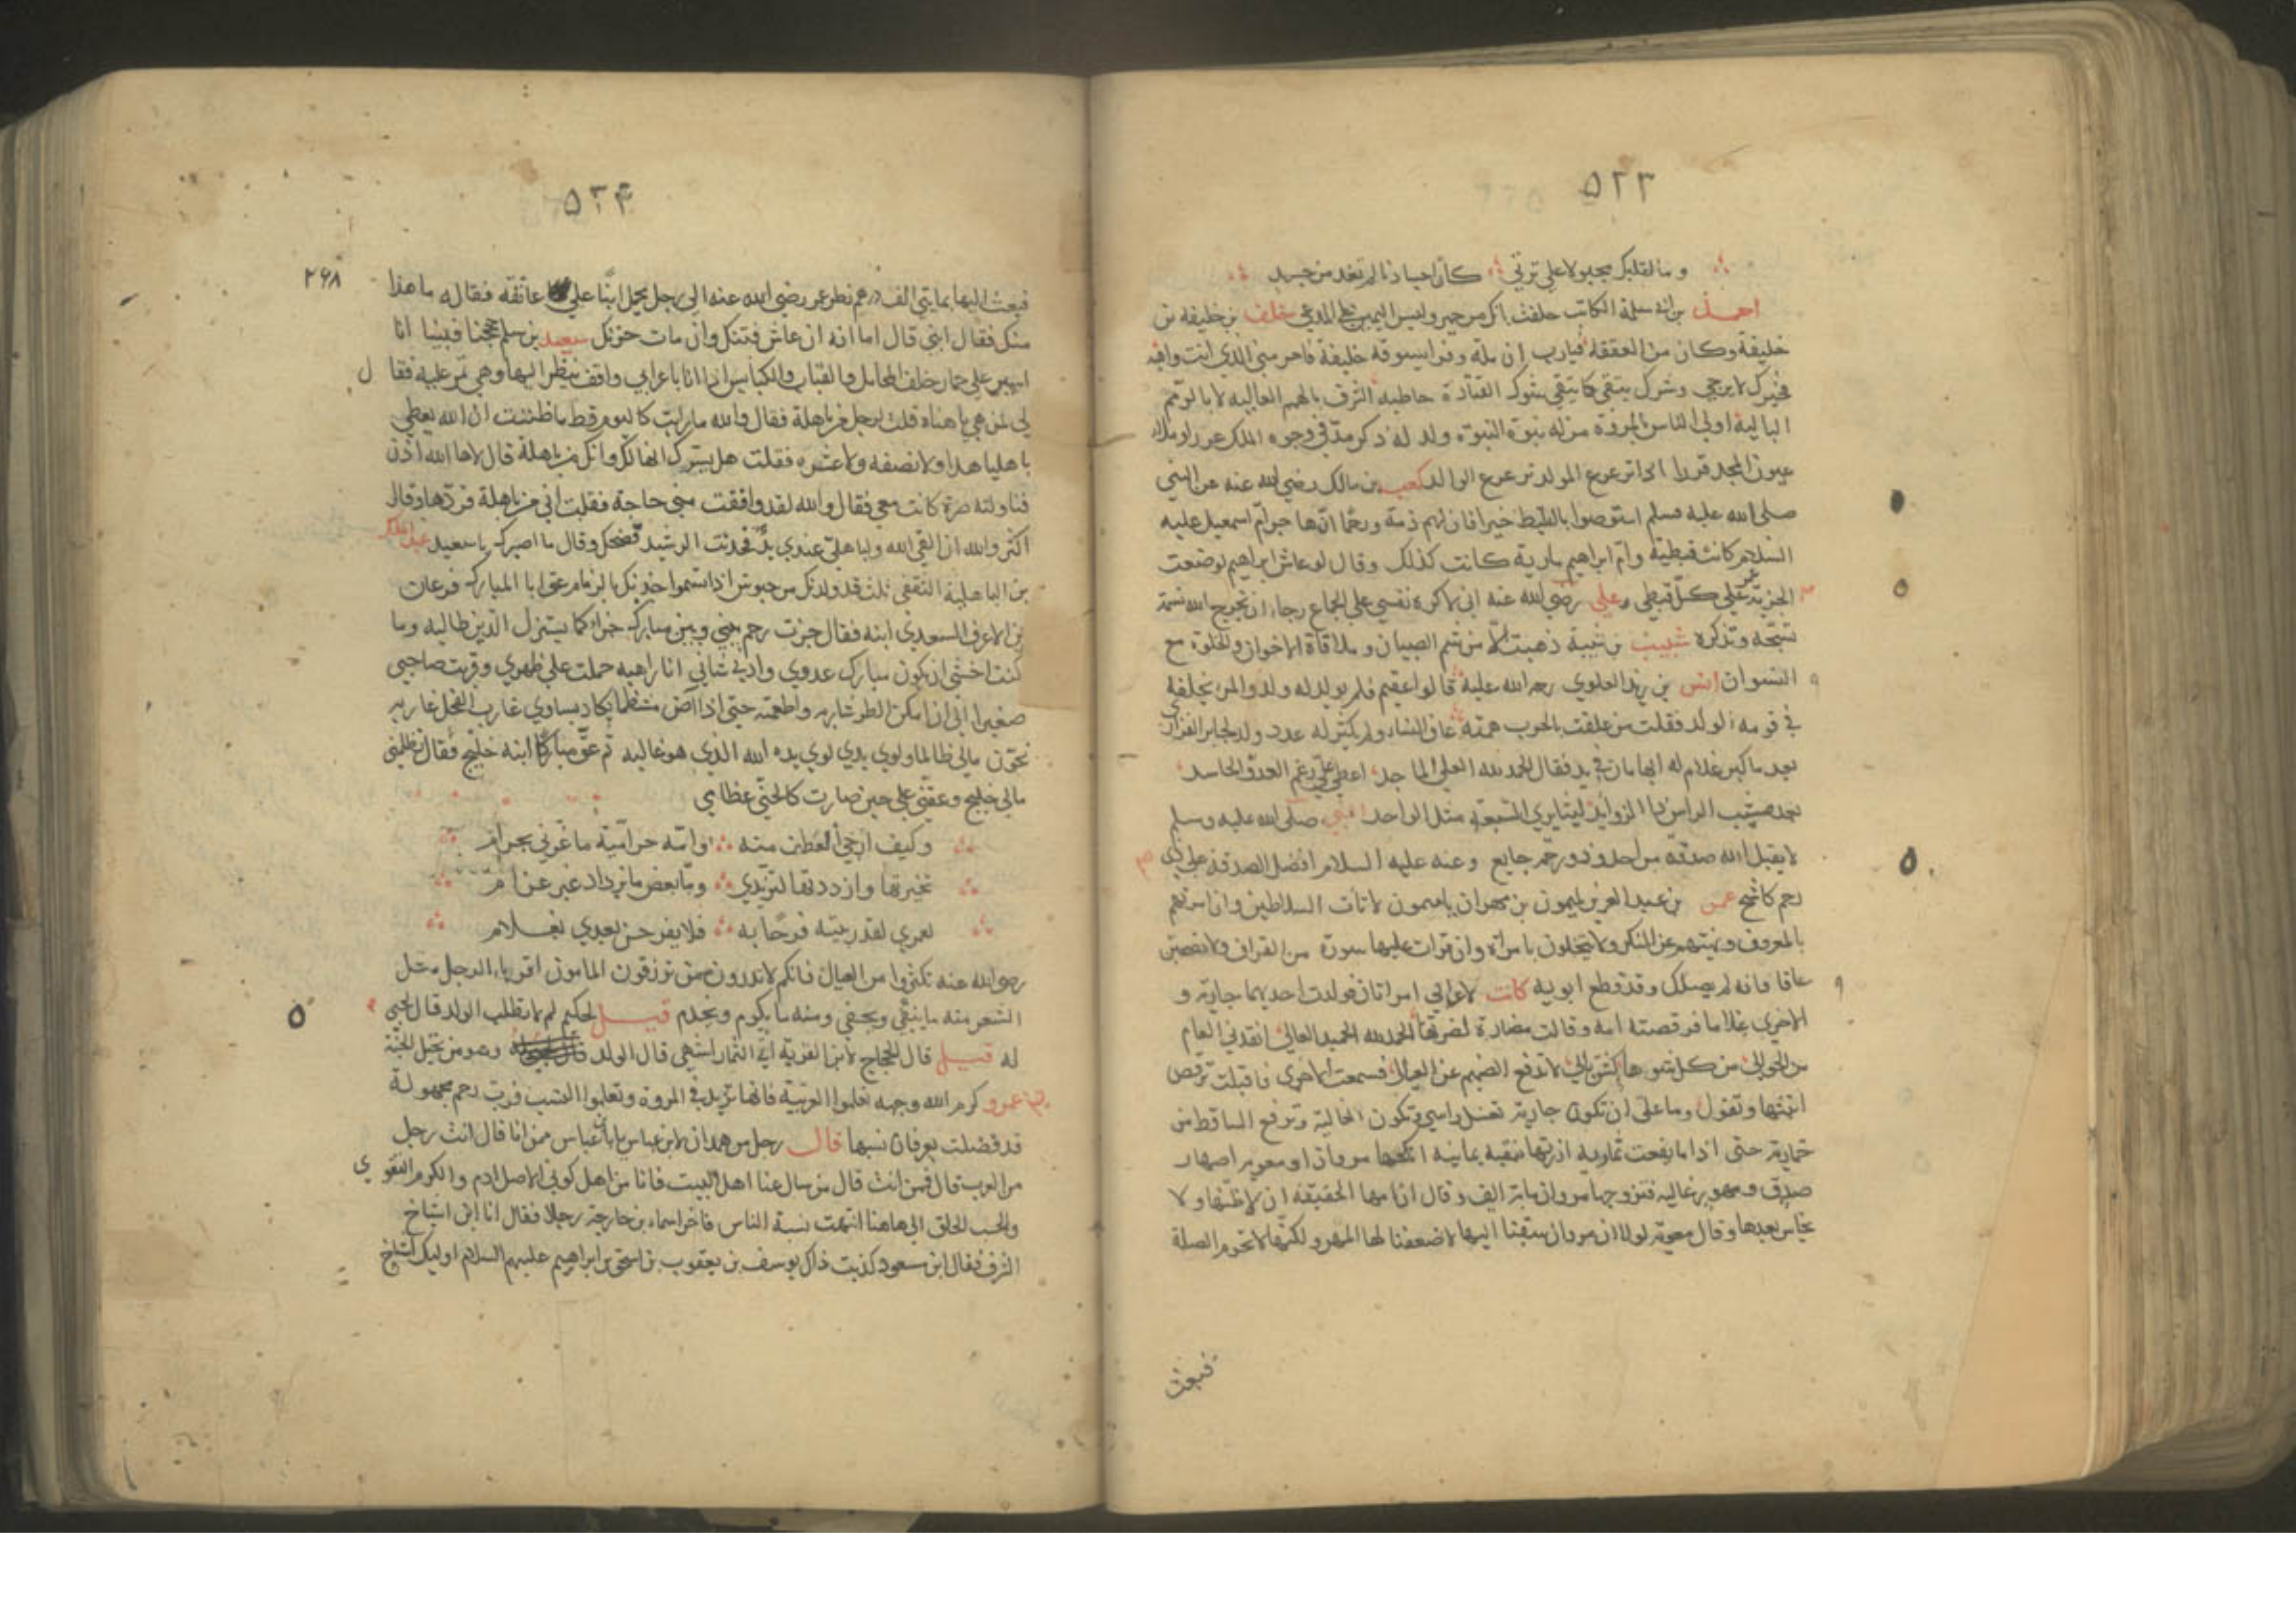 ٥٢٣
وما لقلبك مجبولا على ترتي كأن احبادنا لم تغد من جسد
احمد بن سلمة الكاتب حلفت خلف بن خليفة
خليفة وكان من العققة فيارب ان ملة
فخيرك لا يرجى وشرك يتقى كما يتقى شوك القتادة حاطبه الشرف بالهمم العاليه لا بالرمم
الباليه اولى الناس بالمروة من له بنوة النبوة ولد له ذكر مدّ في وجوه الملك
عيون المجد ترعرع المولد ترعرع الوالد كعب بن مالك رضي الله عنه عن النبي
صلى الله عليه وسلم استوصوا بالقبط خيرا فان لهم ذمة ورحما انها جر ام اسمعيل عليه
السلام كانت قبطية وام ابراهيم مارية كانت كذلك وقال لو عاش ابراهيم لوضعت
الجزية عن كل قبطي علي رضي الله عنه اني لاكره نفسي على الجماع رجاء ان تخرج الله نسمة
تسبحه وتذكره شبيب بن شيبة ذهبت الا من شم الصبيان وملاقاة الاخوان والخلوة مع
النسوان انس بن زيد العلوي رحمه الله عليه قالوا عقيم فلم يولد له ولد والمرء يخلفه
في قومه الولد فقلت من علقت بالحرب همته عاف النساء ولم يكثر له عدد ولد لجابر الفزاري
بعد ما كبر غلام له ابهامان في يد فقال الحمد لله العلي الماجد اعطى على رغم العدو الحاسد
بعد مشيب الراس ذا الزوايد ليثا يري السبعة مثل الواحد النبي صلى الله عليه وسلم
لا يقبل الله صدقة من احد وذو رحم جايع وعنه عليه السلام افضل الصدقة على ذي
رحم كاشح عمر بن عبد العزيز لميمون بن مهران يا ميمون لا تات السلاطين وان امرتهم
بالمعروف ونهيتهم عن المنكر ولا تخلون بامراة وان قرات عليها سورة من القران ولا تصحبن
عاقا فانه لم يصلك وقد قطع ابويه كانت لاعرابي امراتان فولدت احديهما جارية و
الاخرى غلاما فرقصته امه وقالت مضارة لضرتها الحمد لله الحميد العالي انقذني العام
من الخوالي من كل شوهاء كشن بالي لا تدفع الضيم عن العيال فسمعت الاخرى فاقبلت ترقص
ابنتها وتقول وما علي ان تكون جارية تغسل راسي وتكون الخالية وترفع الساقط من
خماريه حتى اذا ما بلغت ثمانيه ازرتها بنقبة يمانيه انكحها مروان او معويه اصهار
صدق ومهور غاليه فتزوجها مروان بماية الف وقال ان امها الحقيقه ان لا يكذب ظنها ولا
يخاس بعهدها وقال معوية لولا ان مروان سبقنا اليها لاضعفنا لها المهر ولكنها لا تحرم الصلة
فبعث
٥٢٤
٢٦٨
فبعث اليها بمايتي الف درهم نظر عمر رضي الله عنه الى رجل يحمل ابنا على عاتقه فقال له ما هذا
منك فقال ابني قال اما انه ان عاش فتنك وان مات حزنك سعيد بن سلم حججنا فبينا انا
اسير على حمار خلف المحامل والقباب والكنايس اذا انا باعرابي واقف ينظر اليها وهي تمر عليه فقا ل
لي لمن هي يا هناه قلت لرجل من باهلة فقال والله ما رايت كاليوم قط ما ظننت ان الله يعطي
باهليا هذا ولا نصفه ولا عشره فقلت هل يسرك انها لك وانك من باهلة قال لاها الله اذن
فناولته صرة كانت معي فقال والله لقد وافقت مني حاجة فقلت اني من باهلة فردها وقال
اكره والله ان القى الله ولباهلي عندي يد فحدثت الرشيد فضحك وقال ما اصبرك يا سعيد عبد الملك
بن الباهلية الثقفي
بن الاعرف السعدي ابنه فقال جزت رحم بيني وبين مبارك جزاء كما يستنزل الدين طالبه وما
كنت اخشى ان يكون مبارك عدوي وادنى شاني انا راهبه حملت على ظهري وقربت صاحبي
صغيرا الى ان امكن الطر شاربه واطعمته حتى اذا آض شيظما يكاد يساوي غارب الفحل غاربه
تخون مالي ظالما ولوى يدي لوى يده الله الذي هو غالبه ثم عق مباركا ابنه خليج فقال تظلمني
مالي خليج وعقني على حين صارت كالحني عظامي
وكيف ارجي العطف منه وامه حرامية ما غرني بحرام
تخيرتها وازددتها لتزيدني وما بعض ما يزداد غير غرام
لعمري لقد ربيته فرحا به فلا يفرحن بعدي بغلام
رضي الله عنه تكثروا من العيال فانكم لا تدرون بمن ترزقون المامون اقرباء الرجل مثل
الشعر منه ما ينقى ويحفى ومنه ما يكرم ويخدم قيل لحكيم لم لا تطلب الولد قال لحبي
له قيل قال الحجاج لابن القرية اي الثمار اشهى قال الولد وهو من نخل الجنة
عمرو كرم الله وجهه تعلموا العربية فانها تزيد في المروة وتعلموا النسب فرب رحم مجهولة
قد وصلت بعرفان نسبها قال رجل من همدان لابن عباس يا بن عباس ممن انا قال انت رجل
من العرب قال فمن انت قال من سال عنا اهل البيت فانا من اهل كوثى الاصل ادم والكرم التقوى
والحسب الخلق الى هاهنا انتهت نسبة الناس فاخر اسماء بن خارجة رجلا فقال انا ابن اشياخ
الشرف فقال ابن مسعود كذبت ذاك يوسف بن يعقوب بن اسحق بن ابراهيم عليهم السلام اوليك اشياخ